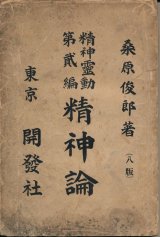 桑原俊郎著
(八版)
精神靈動
第貳編
精神論
東京
開發社